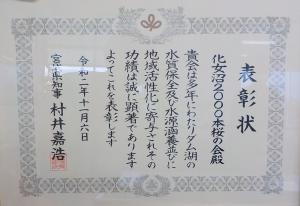 表彰状
化女沼2000本桜の会殿
貴会は多年にわたりダム湖の
水質保全及び水源涵養並びに
地域活性化に寄与されその
功績は誠に顕著であります
よってこれを表彰します
令和二年十一月六日
宮城県知事 村井嘉浩